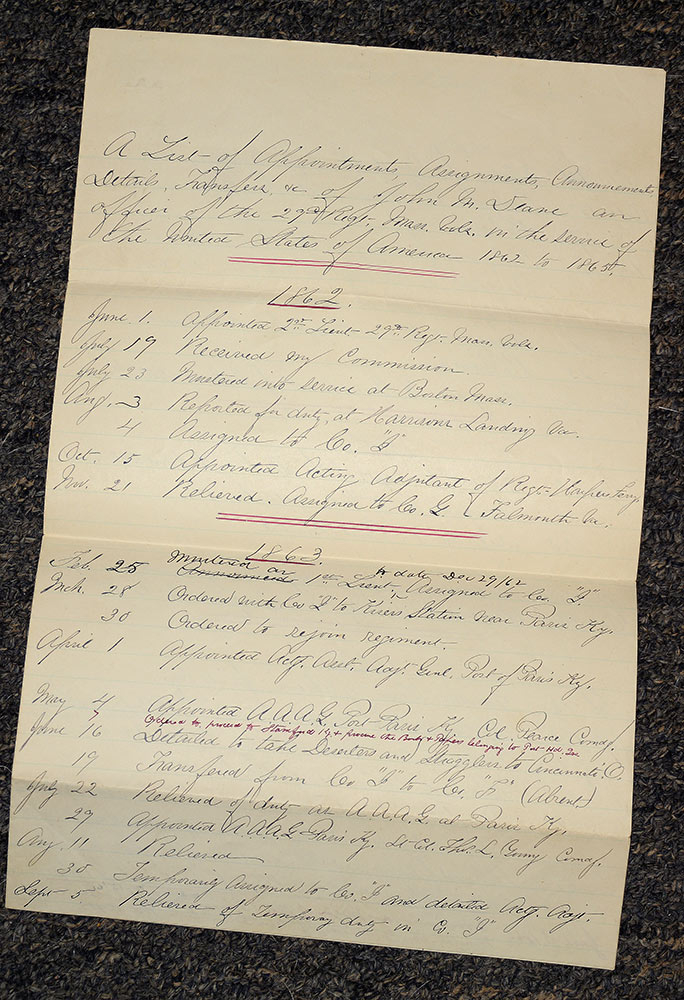 A List of Appointments, Assignments, Announcements
Details, Transfers, &c of John M. Deane an
officer of the 29th Regt. Mass. Vols. in the service of
the United States of America 1862 to 1865.
1862.
June 1. Appointed 2nd Lieut 29th Regt. Mass. Vols.
July 19 Received my Commission.
July 23 Mustered into service at Boston Mass.
Aug. 3 Reported for duty, at Harrisons Landing Va.
4 Assigned to Co. "I"
Oct. 15 Appointed Acting Adjutant of Regt. Harpers Ferry,
Nov. 21 Relieved. Assigned to Co. G. Falmouth Va.
1863.
Feb. 25 Mustered as 1st Lieut, to date Dec 29/62 Assigned to Co. "I"
Mch. 28 Ordered with Co "I" to Kisers Station near Paris Ky.
30 Ordered to rejoin regiment.
April 1 Appointed Actg. Asst. Adjt. Genl. Post of Paris Ky.
May 4 Appointed A.A.A.G. Post Paris Ky. Col. Pearce Comdg.
7 Ordered to proceed to Stamford Ky & procure the Books & Papers belonging to Post Hd. Qrs
June 16 Detailed to take Deserters and Stragglers to Cincinnati O.
19 Transfered from Co "I" to Co. "F" (Absent.)
July 22 Relieved of duty as A.A.A.G. at Paris Ky.
29 Appointed A.A.A.G. Paris Ky. Lt. Col. Comdg.
Aug. 11 Relieved
30 Temporarily assigned to Co. "I" and detailed Actg. Adjt.
Sept 5 Relieved of Temporay duty in Co. "I"